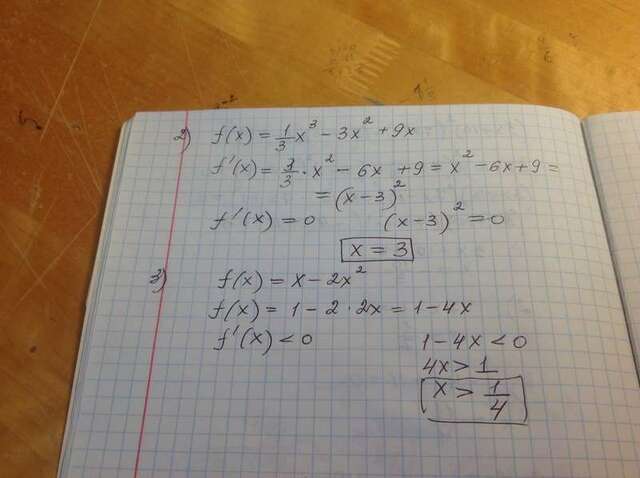 2) f(x) = 1/3 x³ - 3x² + 9x
f'(x) = 3/3 · x² - 6x + 9 = x² - 6x + 9 =
= (x - 3)²
f'(x) = 0 (x - 3)² = 0
x = 3
3) f(x) = x - 2x²
f(x) = 1 - 2 · 2x = 1 - 4x
f'(x) < 0 1 - 4x < 0
4x > 1
x > 1/4